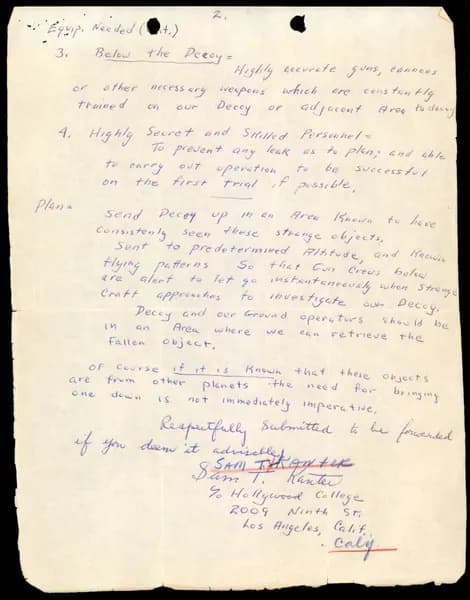 2.
Equip. Needed (   t.)
3. Below the Decoy =
Highly accurate guns, cannons
or other necessary weapons which are constantly
trained on our Decoy or adjacent Area to decoy
4. Highly Secret and Skilled Personnel =
To prevent any leak as to plan; and able
to carry out operation to be successful
on the first trial if possible.
Plan =
Send Decoy up in an Area Known to have
consistenly seen these strange objects.
Sent to predetermined Altitude, and Known
flying patterns So that Gun Crews below
are alert to let go instantaneously when strange
Craft approaches to investigate our Decoy.
Decoy and our Ground operators should be
in an Area where we can retrieve the
Fallen object.
Of course if it is Known that these objects
are from other planets the need for bringing
one down is not immediately imperative.
Respectfully Submitted to be forwarded
if you deem it advisable,
SAM T. KANTER
Sam T. Kanter
c/o Hollywood College
2009 Ninth St.
Los Angeles, Calif.
Caly